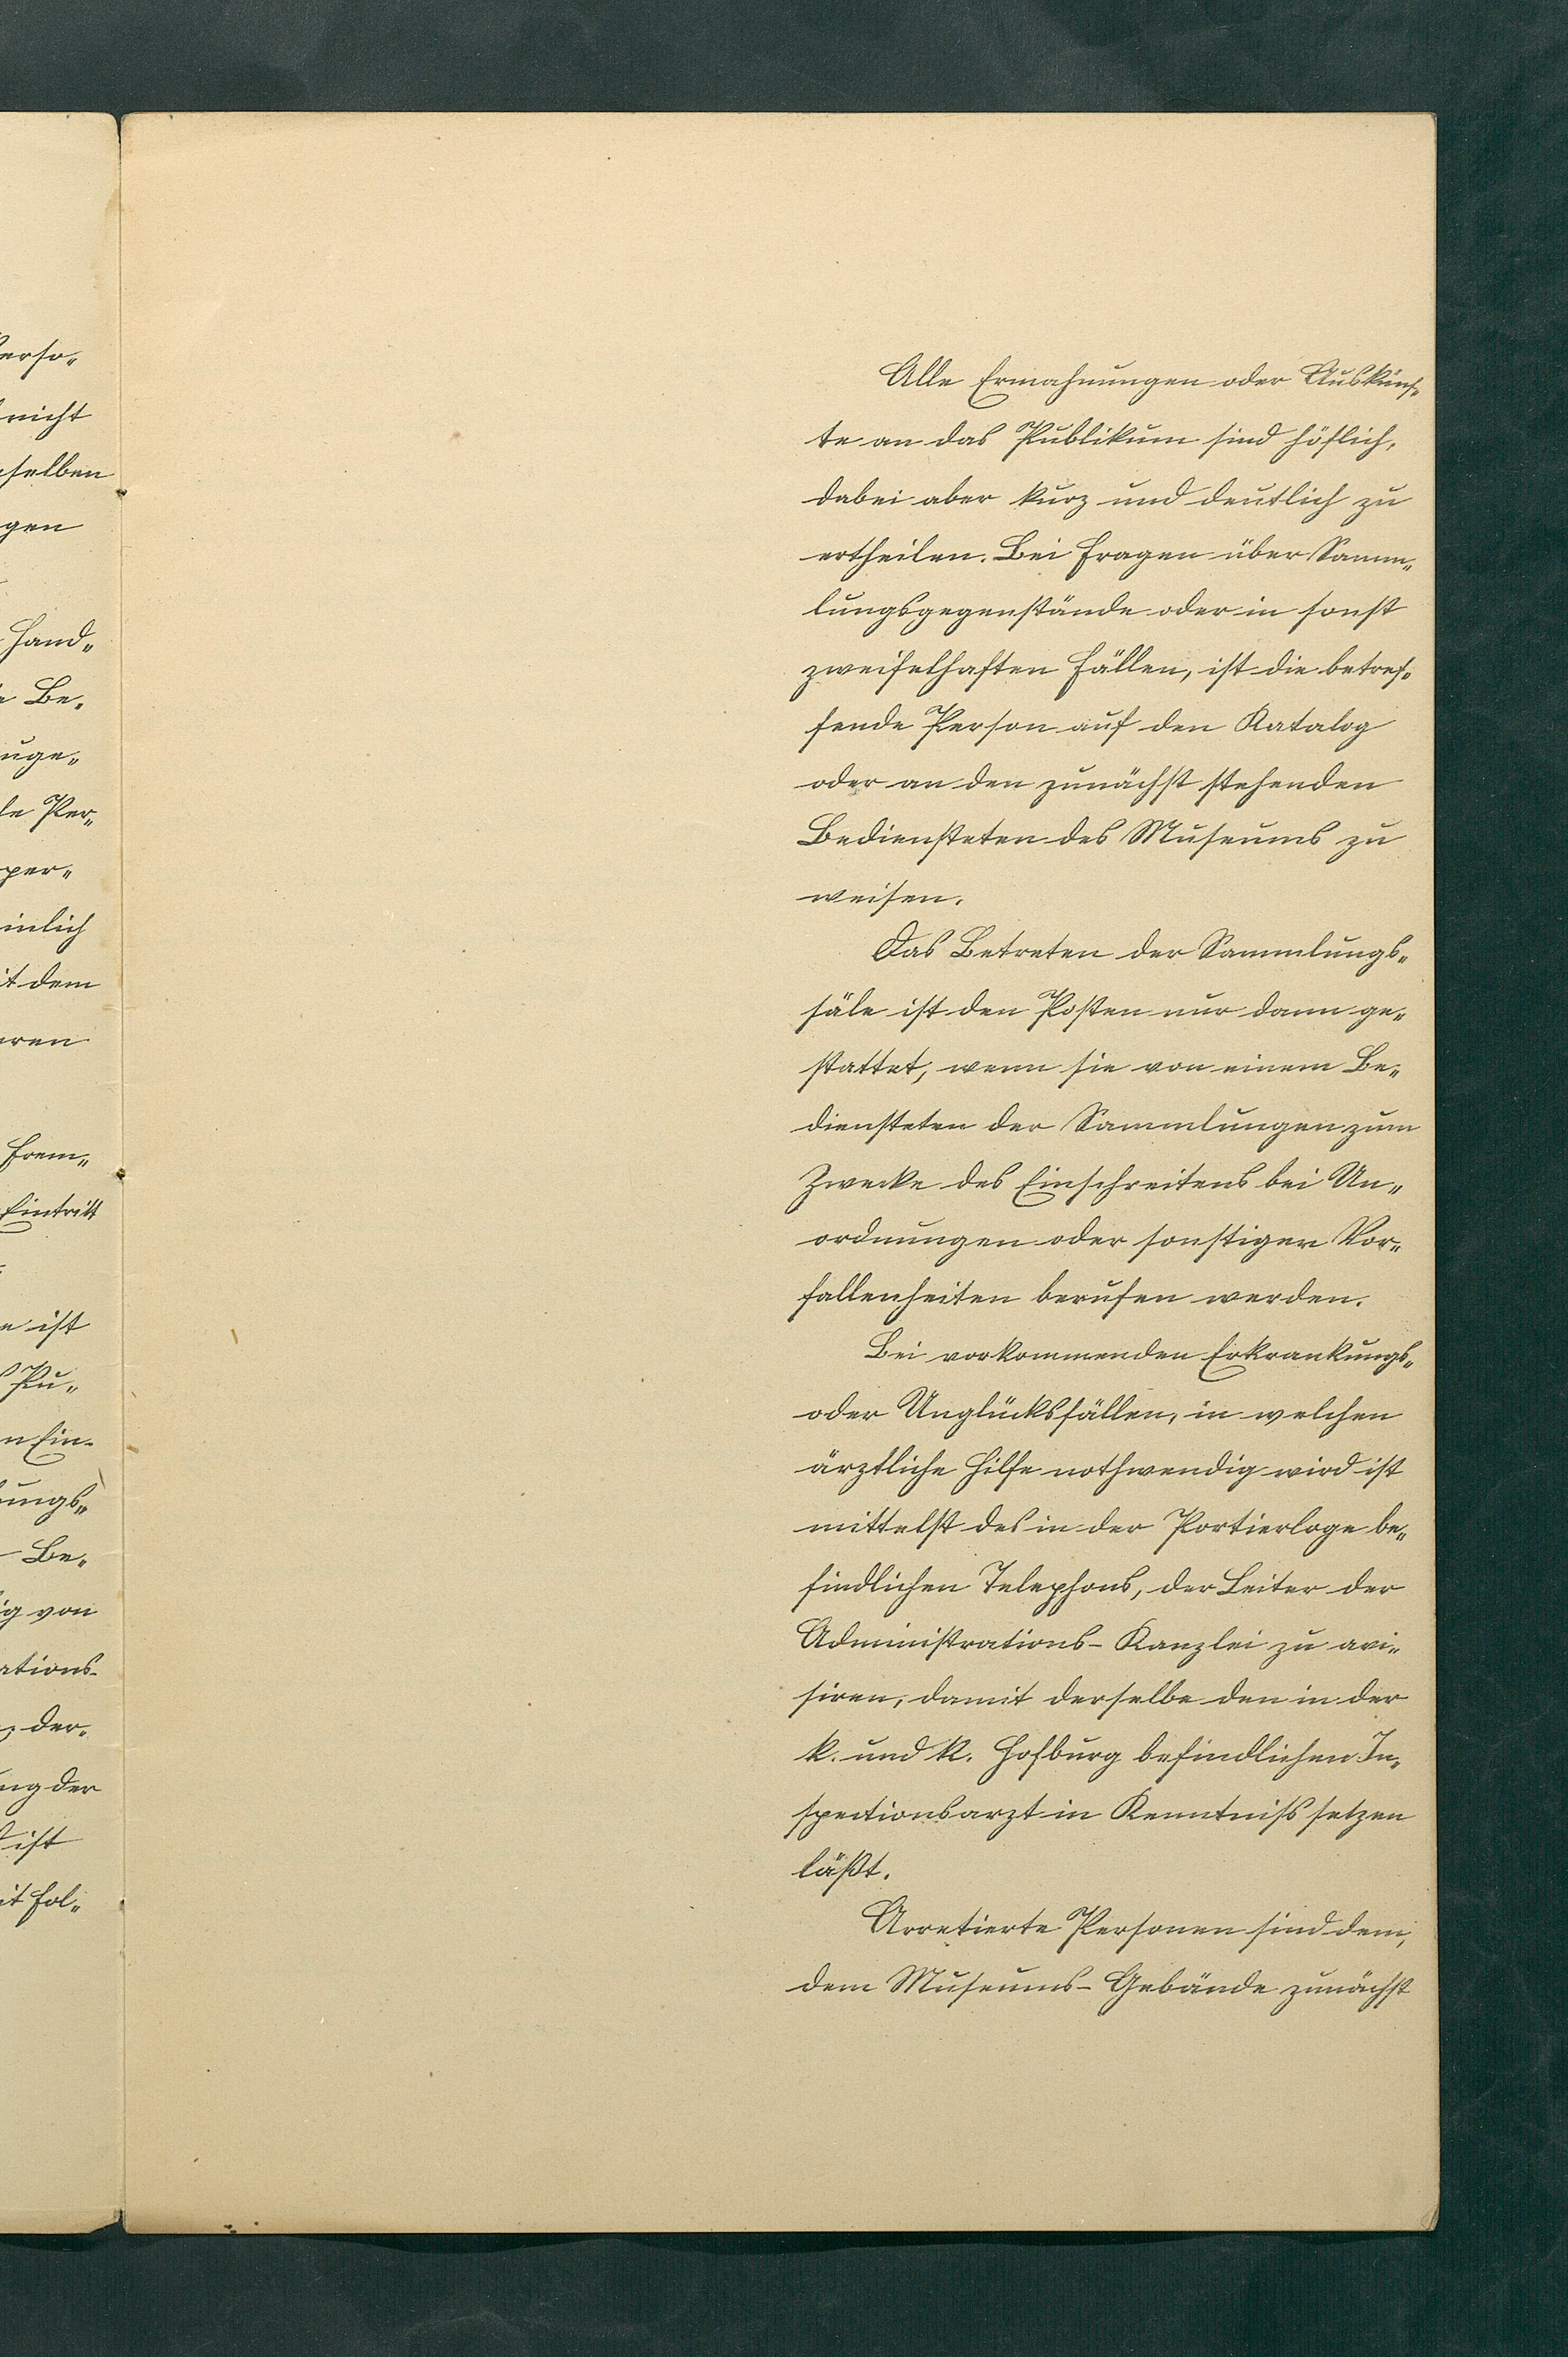 erso„
nicht
selben
gen
Hand„
e Be„
uge„
le Per„
per„
inlich
it dem
eren
Frem„
Eintritt
e ist
Pu„
n Ein-
ungs„
Be„
ig von
ations-
der„
ng der
ist
it Fol„
Alle Ermahnungen oder Auskünf„
te an das Publikum sind höflich,
dabei aber kurz und deutlich zu
ertheilen. Bei Fragen über Samm„
lungsgegenstände oder in sonst
zweifelhaften Fällen, ist die betref„
fende Person auf den Katalog
oder an den zunächst stehenden
Bediensteten des Museums zu
weisen.
Das Betreten der Sammlungs„
säle ist den Posten nur dann ge„
stattet, wenn sie von einem Be„
diensteten der Sammlungen zum
Zwecke des Einschreitens bei Un„
ordnungen oder sonstiger Vor„
fallenheiten berufen werden.
Bei vorkommenden Erkrankungs„
oder Unglücksfällen, in welchen
ärztliche Hilfe nothwendig wird ist
mittelst des in der Portierloge be„
findlichen Telephons, der Leiter der
Administrations-Kanzlei zu avi„
siren, damit derselbe den in der
k. und k. Hofburg befindlichen In„
spectionsarzt in Kenntniß setzen
läßt.
Arretierte Personen sind dem,
dem Museums-Gebäude zunächst